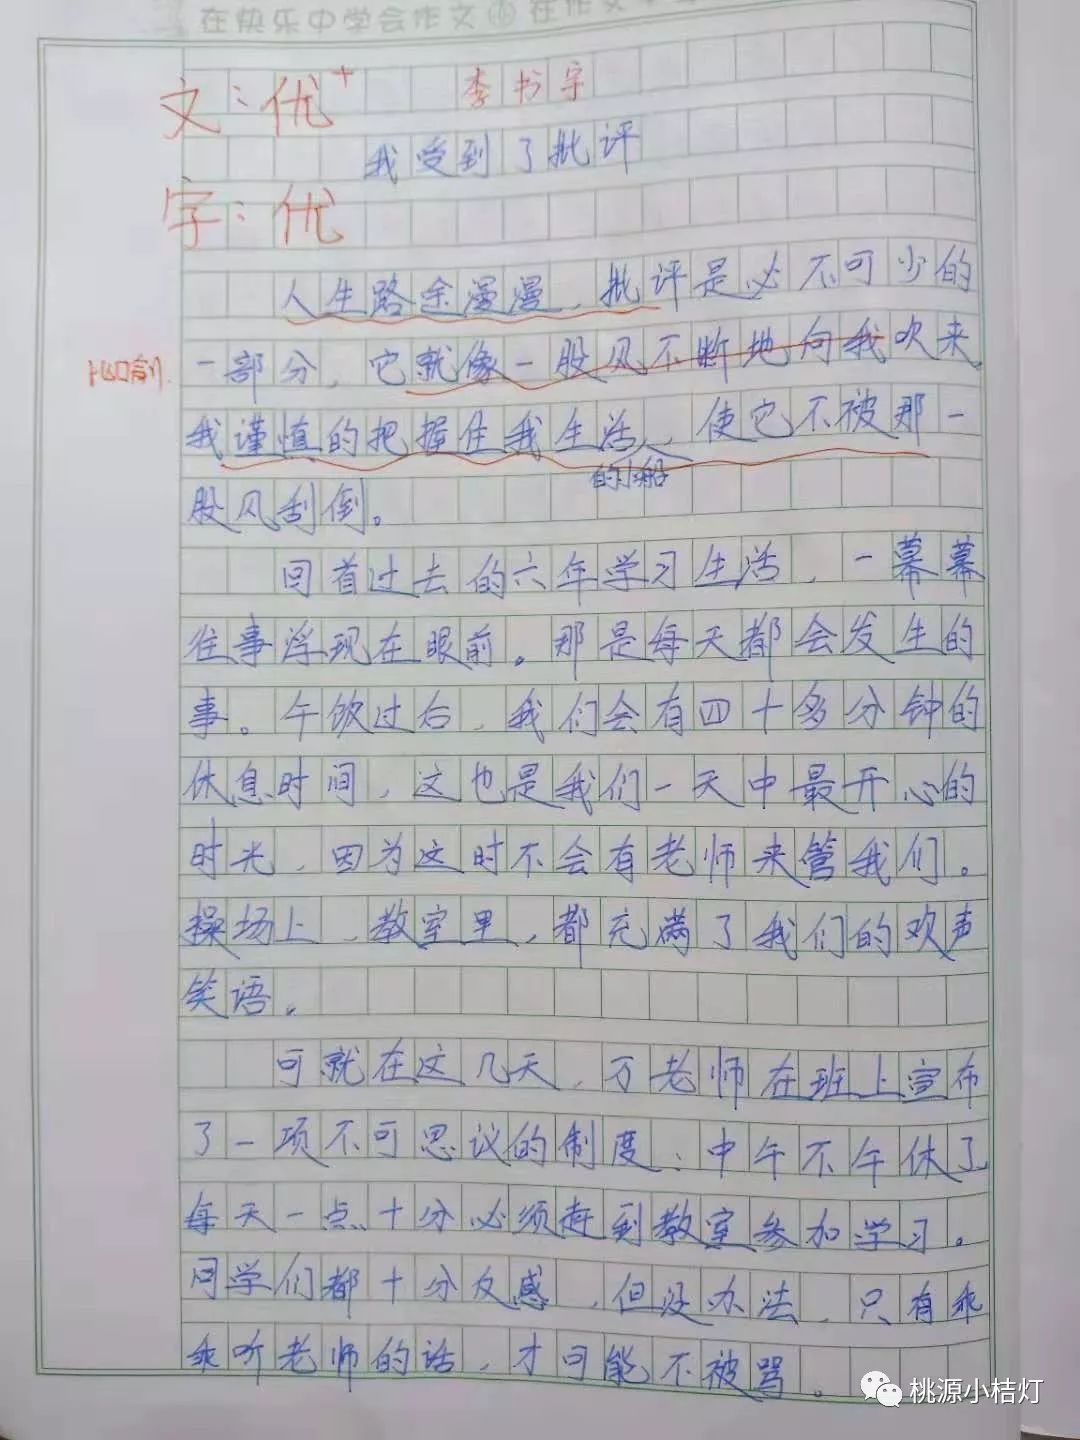 在快乐中学会作文 在作文
文：优+ 李书宇
我受到了批评
字：优
人生路途漫漫，批评是必不可少的
一部分，它就像一股风不断地向我吹来
比喻
我谨慎的把握住我生活的小船，使它不被那一
股风刮倒。
回首过去的六年学习生活，一幕幕
往事浮现在眼前。那是每天都会发生的
事。午饭过后，我们会有四十多分钟的
休息时间，这也是我们一天中最开心的
时光，因为这时不会有老师来管我们。
操场上，教室里，都充满了我们的欢声
笑语。
可就在这几天，万老师在班上宣布
了一项不可思议的制度：中午不午休了
每天一点十分必须赶到教室参加学习。
同学们都十分反感，但没办法，只有乖
乖听老师的话，才可能不被骂。
桃源小桔灯